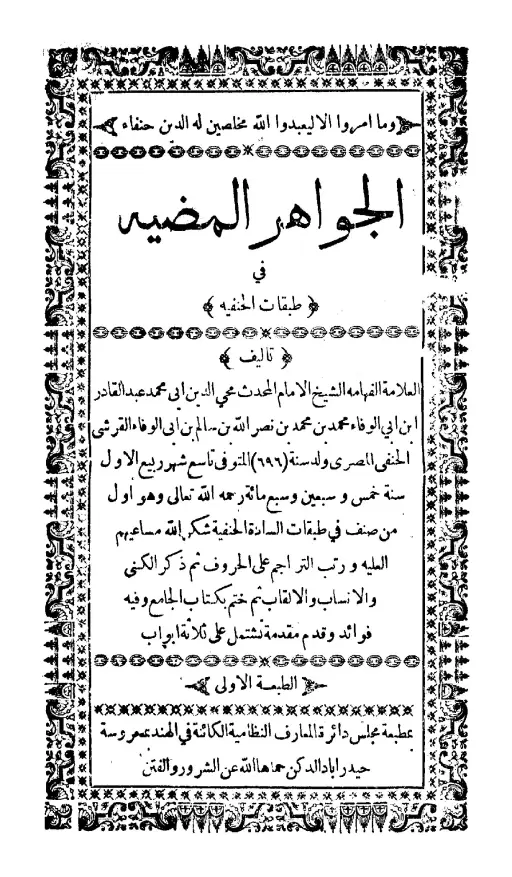 وما امروا الا ليعبدوا الله مخلصين له الدين حنفاء
الجواهر المضيه
في
﴿ طبقات الحنفيه ﴾
﴿ تاليف ﴾
العلامة الفهامه الشيخ الامام المحدث محي الدين ابى محمد عبد القادر
ابن ابي الوفاء محمد بن محمد بن نصر الله بن سالم بن ابى الوفاء القرشى
الحنفى المصرى ولد سنة (٦٩٦) المتوفى تاسع شهر ربيع الاول
سنة خمس و سبعين وسبع مائة رحمه الله تعالى وهو اول
من صنف في طبقات السادة الحنفية شكر الله مساعيهم
العليه و رتب التراجم على الحروف ثم ذكر الكنى
والانساب والالقاب ثم ختم بكتاب الجامع وفيه
فوائد وقدم مقدمة تشتمل على ثلاثة ابواب
الطبعة الاولى
بمطبعة مجلس دائرة المعارف النظامية الكائنة في الهند بمحروسة
حيدر اباد الدكن حماها الله عن الشرور والفتن